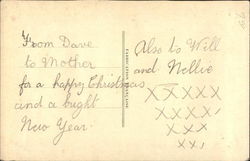 From Dave
to Mother
for a happy Christmas
and a bright
New Year.
Also to Will
and Nellie
X X X X X
X X X X
X X X
X X